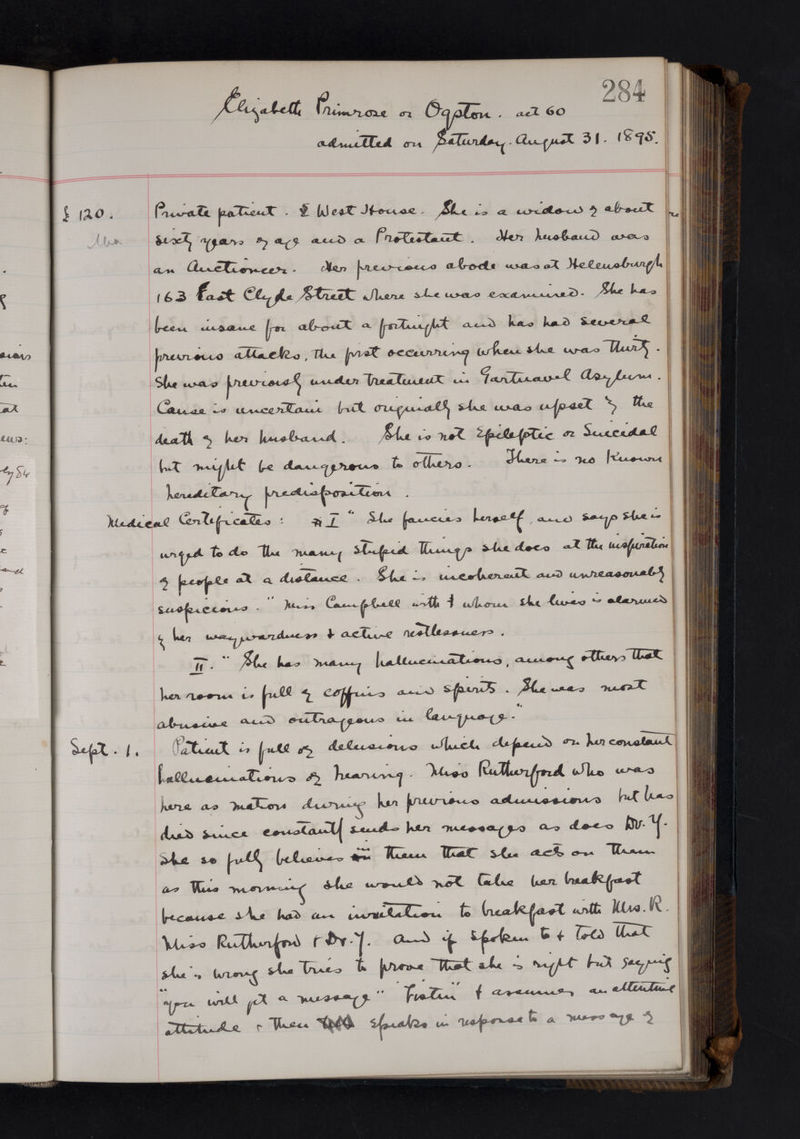 284
Elizabeth Primrose or Ogston. aet 60
admitted on Saturday. August 31. 1895.
£ 120. Private patient. West House. She is a widow of about
sixty years of age and a Protestant. Her husband was
an Auctioneer. Her previous abode was at Helensburgh
163 East Clyde Street where she was examined. She has
been insane for about a fortnight and has had several
previous attacks, the first occurring when she was thirty.
She was previously under treatment in Gartnavel Asylum.
Cause is uncertain but originally she was upset by the
death of her husband. She is not Epileptic or Suicidal
but might be dangerous to others. There is no known
hereditary predisposition.
Medical Certificates: I " She fancies herself, and says she is
urged to do the many stupid things she does at the inspiration
of people at a distance. She is incoherent and unreasonably
suspicious." Miss Campbell with whom she lives is alarmed
by her waywardness & active restlessness.
II. " She has many hallucinations, among others that
her room is full of coffins and spirits. She was most
abusive and outrageous in language."
Sept. 1. Patient is full of delusions which depend on her constant
hallucinations of hearing. Miss Rutherford who was
here as matron during her previous admissions but has
died since constantly sends her messages as does Dr. Y.
She so fully believes in them that she acts on them
as this morning she would not take her breakfast
because she had an invitation to breakfast with Mrs. R.
Miss Rutherford & Dr. Y. And if spoken to & told that
she is wrong she tries to prove that she is right but saying
"you will get a message" "listen" & assumes an attentive
attitude & then speaks in response to a message of